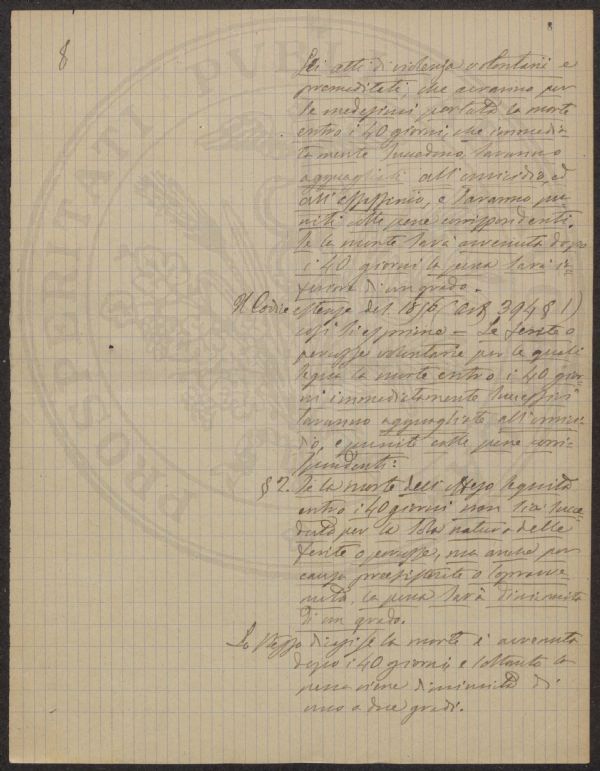 8
8
Gli atti di violenza volontari e
premeditati, che avranno per
se medesimi portata la morte
entro i 40 giorni, che immedia
tamente succedono, saranno
agguagliati all'omicidio, ed
all'assassinio, e saranno pu
niti colle pene corrispondenti.
Se la morte sarà avvenuta dopo
i 40 giorni la pena sarà in=
feriore di un grado.
Il Codice estense del 1855 (art 394 § 1)
così si esprime = Le ferite o
percosse volontarie per le quali
segua la morte entro i 40 gior
ni immediatamente successivi
saranno agguagliate all'omici
dio, e punite colle pene corri
spondenti:
§ 2. Se la morte dell'offeso seguita
entro i 40 giorni non sia succe
duta per la sola natura delle
ferite o percosse, ma anche per
causa preesistente o sopravve
nuta, la pena sarà diminuita
di un grado.
Lo stesso dicasi se la morte è avvenuta
dopo i 40 giorni e soltanto la
pena viene diminuita di
uno a due gradi.
PROSPERITATI PUBL